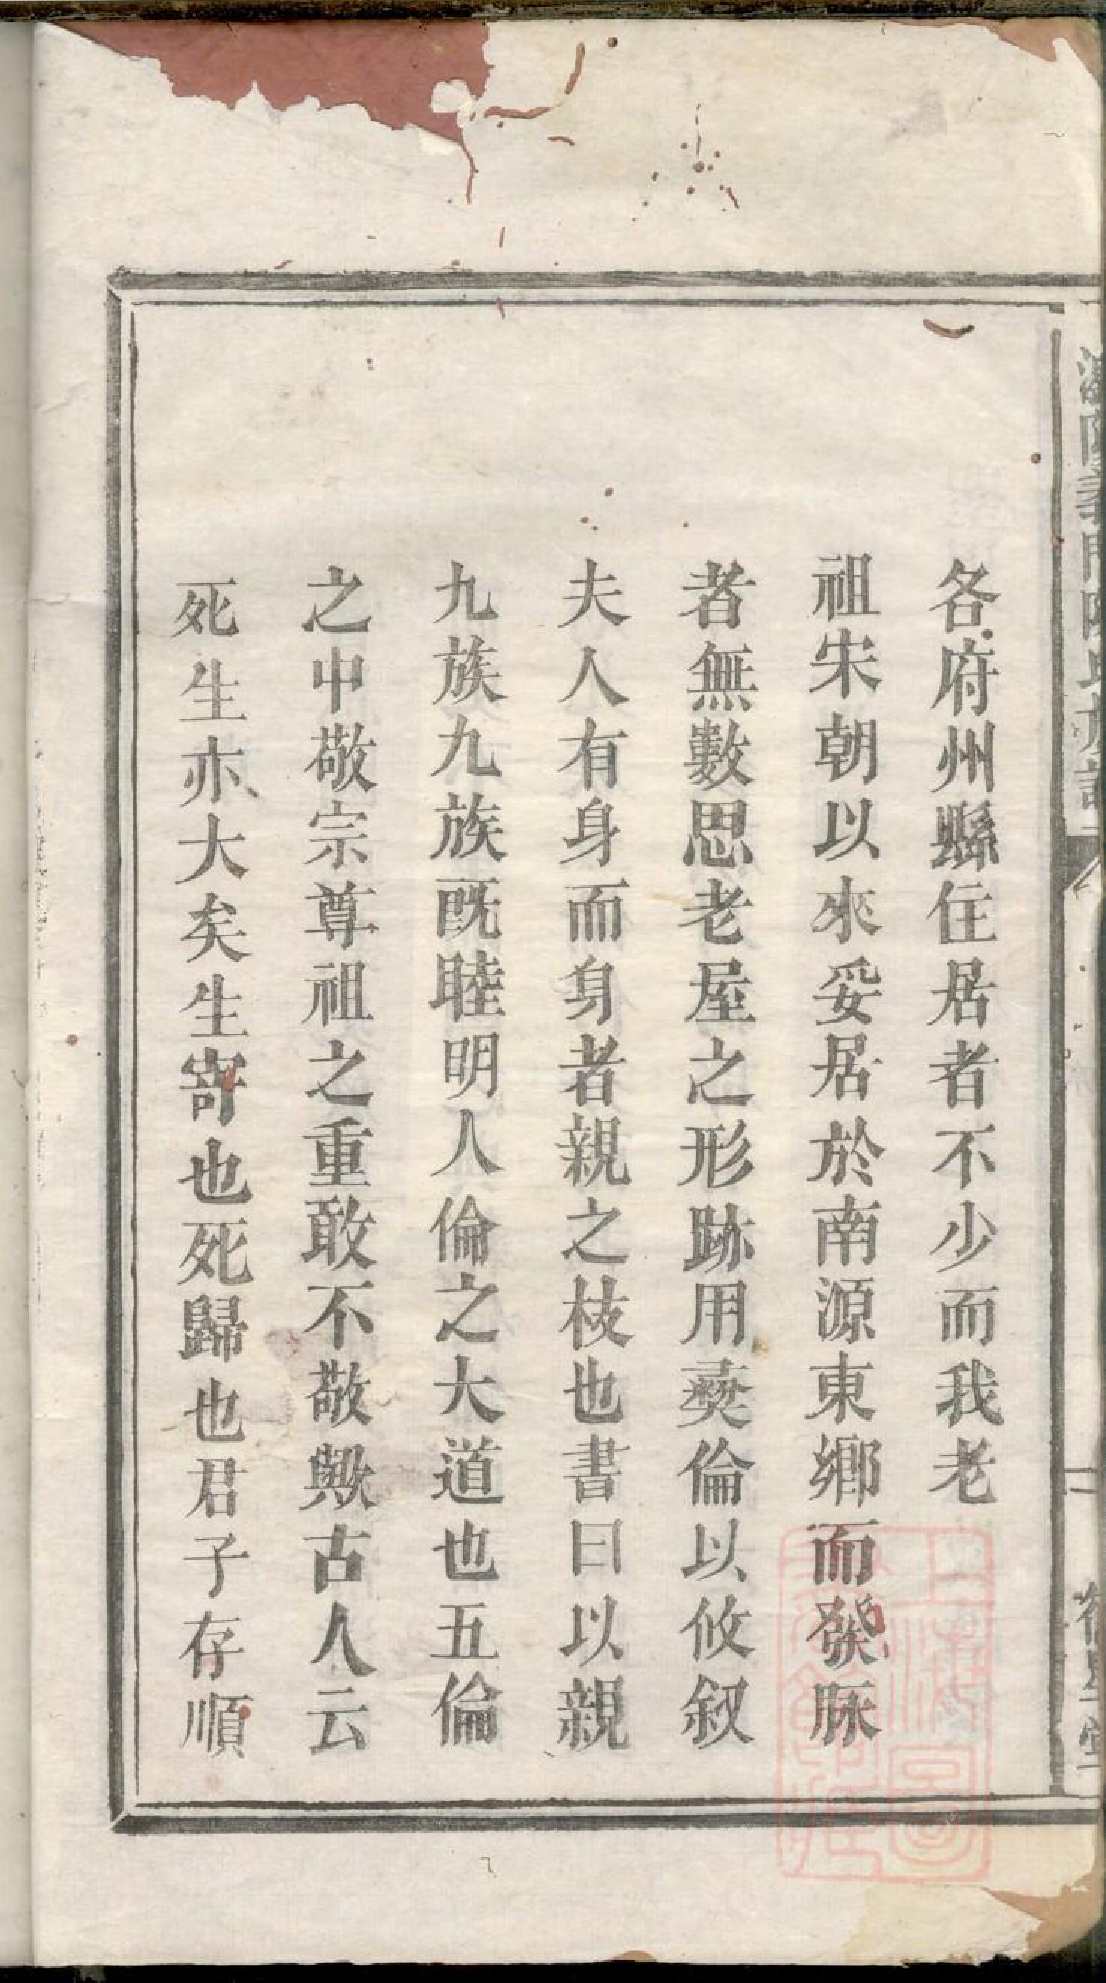 各府州縣住居者不少而我老
祖宋朝以來妥居於南源東鄉而發脉
者無數思老屋之形跡用彜倫以攸叙
夫人有身而身者親之枝也書曰以親
九族九族既睦明人倫之大道也五倫
之中敬宗尊祖之重敢不敬歟古人云
死生亦大矣生寄也死歸也君子存順